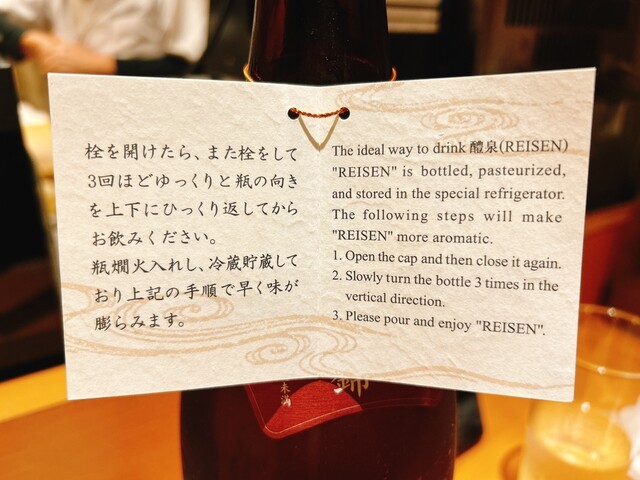 栓を開けたら、また栓をして
3回ほどゆっくりと瓶の向き
を上下にひっくり返してから
お飲みください。
瓶燗火入れし、冷蔵貯蔵して
おり上記の手順で早く味が
膨らみます。
The ideal way to drink 醴泉(REISEN)
"REISEN" is bottled, pasteurized,
and stored in the special refrigerator.
The following steps will make
"REISEN" more aromatic.
1. Open the cap and then close it again.
2. Slowly turn the bottle 3 times in the
vertical direction.
3. Please pour and enjoy "REISEN".
錦
未満